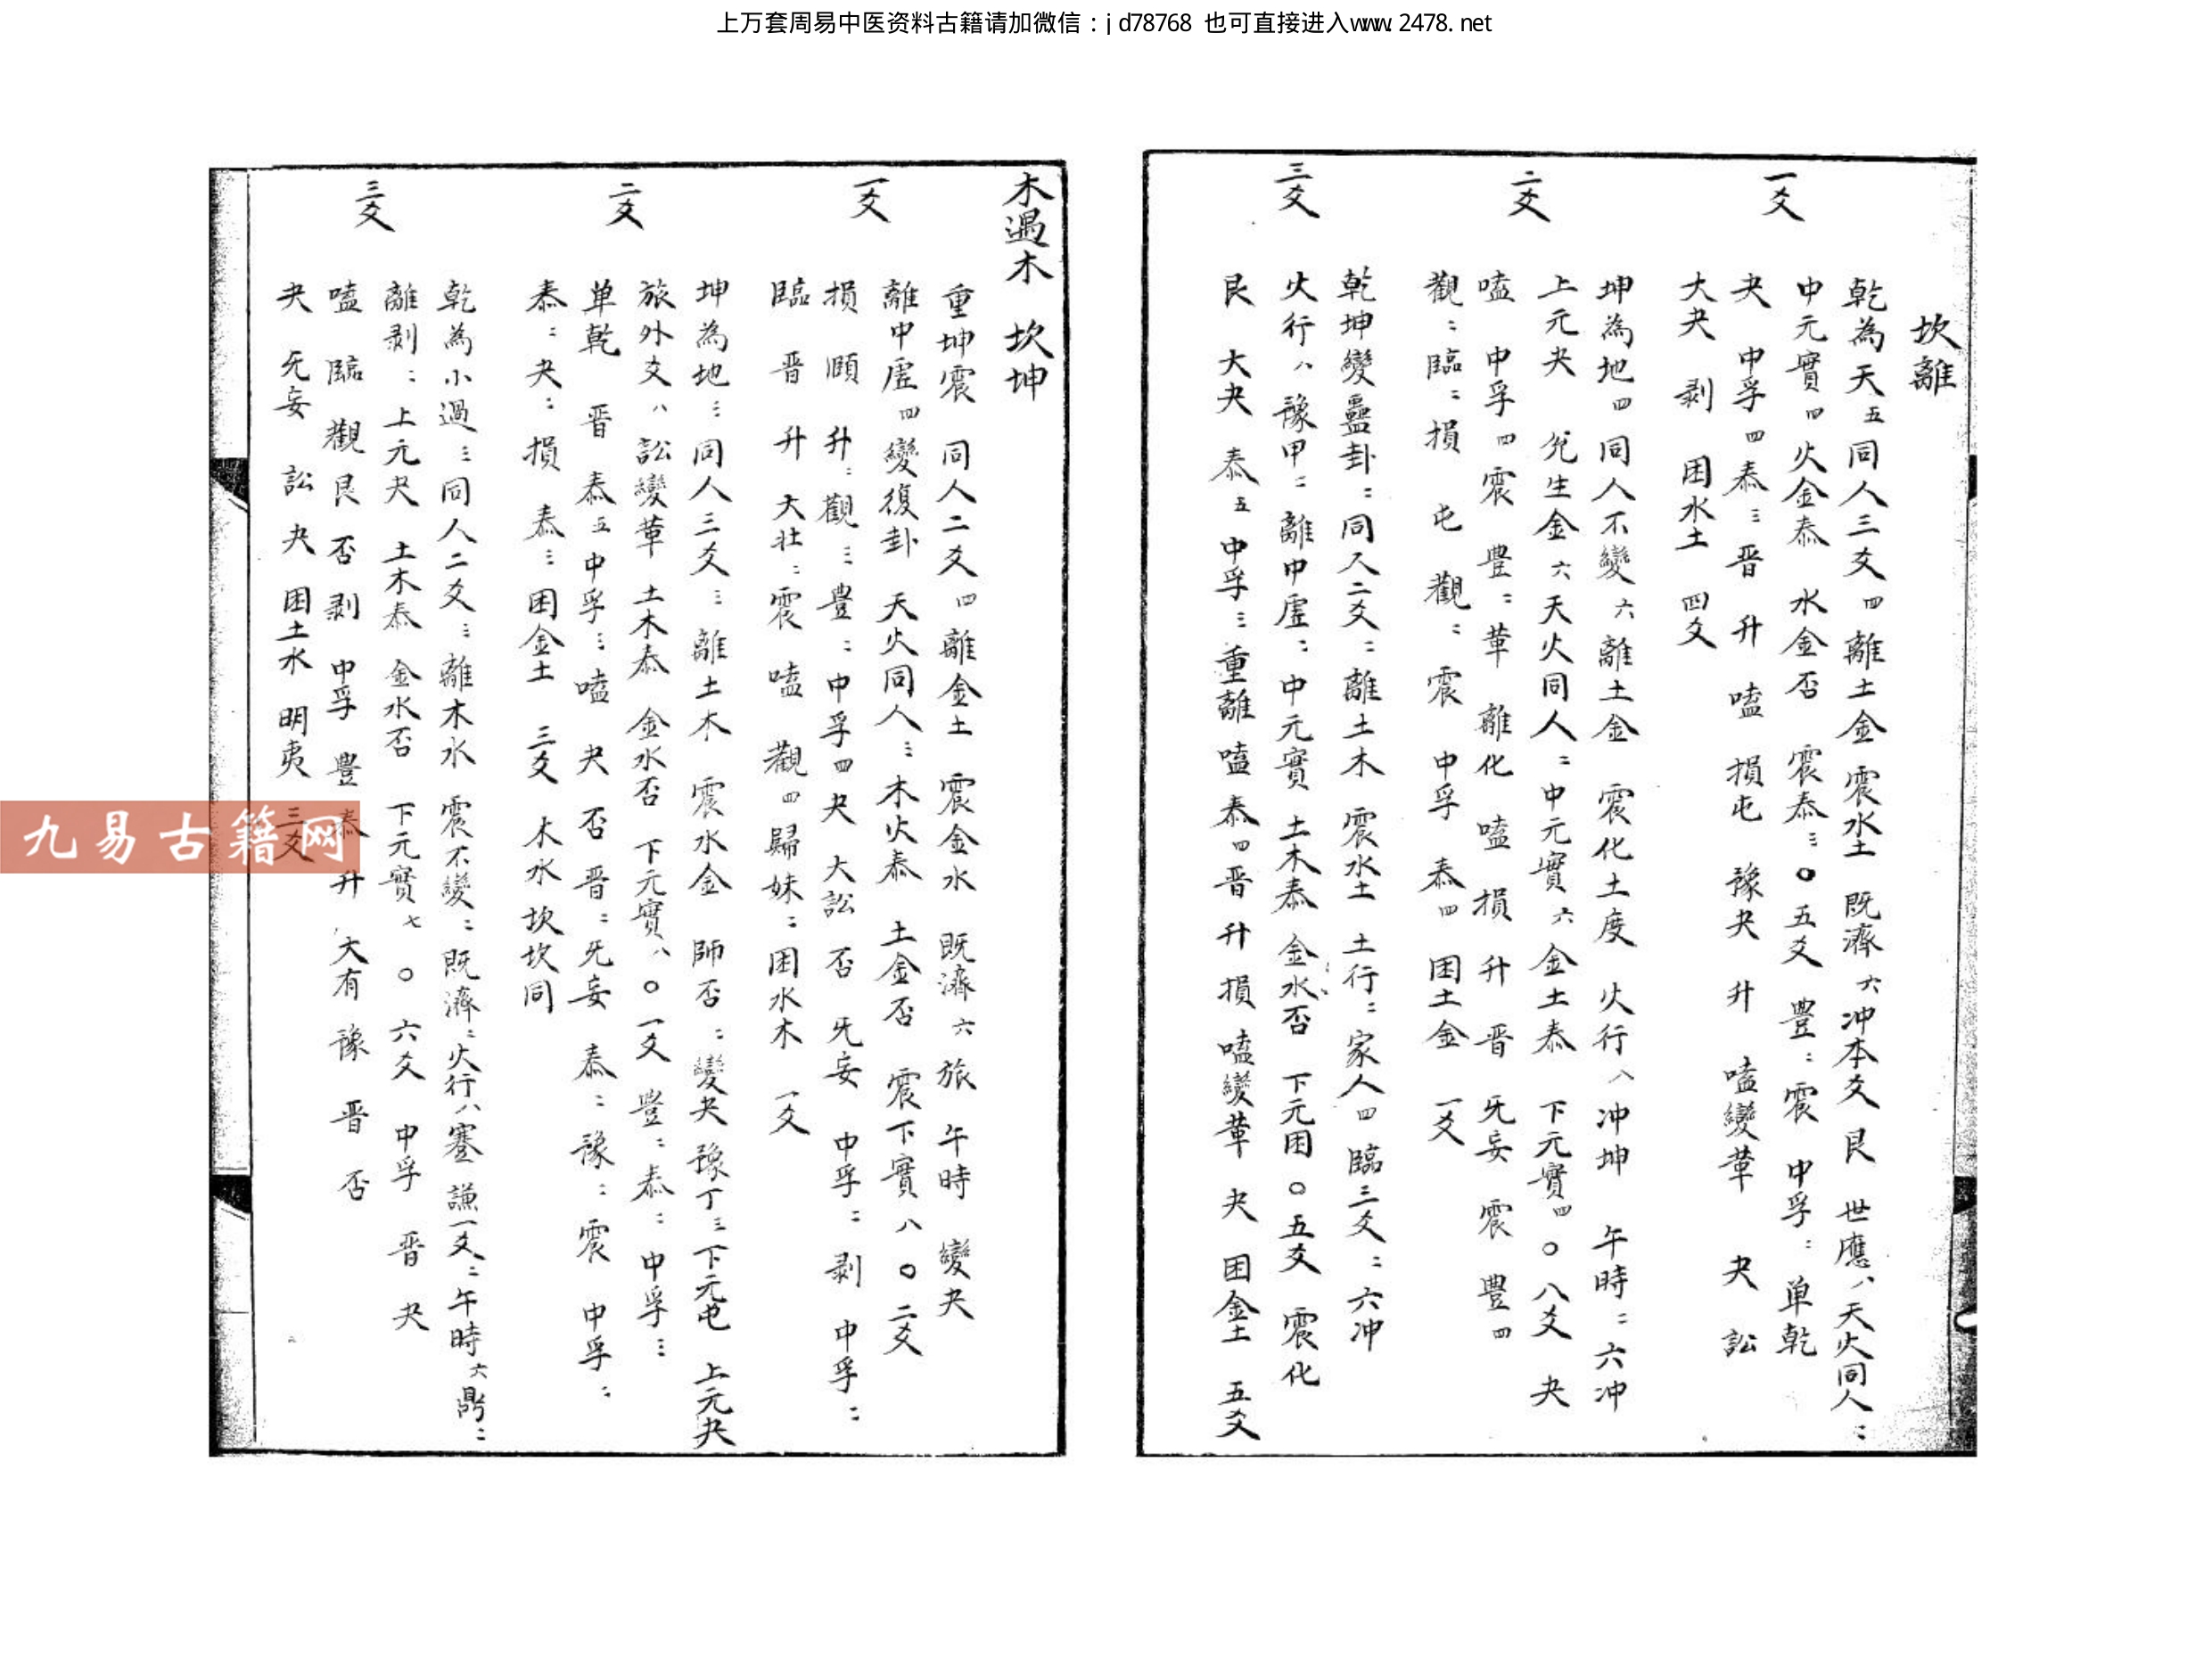 上万套周易中医资料古籍请加微信：jd78768 也可直接进入www.2478.net
坎離
一爻
乾為天五同人三爻四離土金 震水土 既濟六冲本爻艮 世應八天火同人二
中元實四火金泰 水金否 震泰三〇五爻 豐二震 中孚二單乾
夬 中孚四泰三晋 升 嗑 損屯 豫夬 升 嗑變革 夬 訟
大夬 剥 困水土 四爻
二爻
坤為地四同人不變六離土金 震化土度 火行八冲坤 午時二六冲
上元夬 兌生金六天火同人二中元實六金土泰 下元實四〇八爻 夬
嗑 中孚四震 豊二革 離化 嗑 損 升 晋 旡妄 震 豊四
觀二臨二損 屯 觀二震 中孚 泰四困土金 一爻
三爻
乾坤變蠱卦二同人二爻二離土木 震水土 土行二家人四臨三爻二六冲
火行八豫甲二離中虛二中元實 土木泰 金水否 下元困〇五爻 震化
艮 大夬 泰五中孚三重離 嗑 泰四晋 升 損 嗑變革 夬 困金土 五爻
木遇木 坎坤
一爻
重坤震 同人二爻四離金土 震金水 既濟六旅 午時 變夬
離中虛四變復卦 天火同人三木火泰 土金否 震下實八〇二爻
損 頤 升二觀三豊二中孚四夬 大訟 否 旡妄 中孚二剥 中孚二
臨 晋 升 大壯二震 嗑 觀四歸妹二困水木 一爻
二爻
坤為地三同人三爻三離土木 震水金 師否二變夬 豫丁三下元屯 上元夬
旅外爻八訟變革 土木泰 金水否 下元實八〇一爻 豐二泰二中孚三
单乾 晋 泰五中孚三嗑 夬 否 晋二旡妄 泰二豫二震 中孚二
泰二夬二損 泰三困金土 三爻 木水坎坎同
三爻
乾為小過三同人二爻三離木水 震不變二既濟二火行八蹇 謙一爻二午時六鼎二
離剥二上元夬 土木泰 金水否 下元實七〇六爻 中孚 晋 夬
嗑 臨 觀 艮 否 剥 中孚 豐 泰 升 大有 豫 晋 否
夬 旡妄 訟 夬 困土水 明夷 三爻
九易古籍网